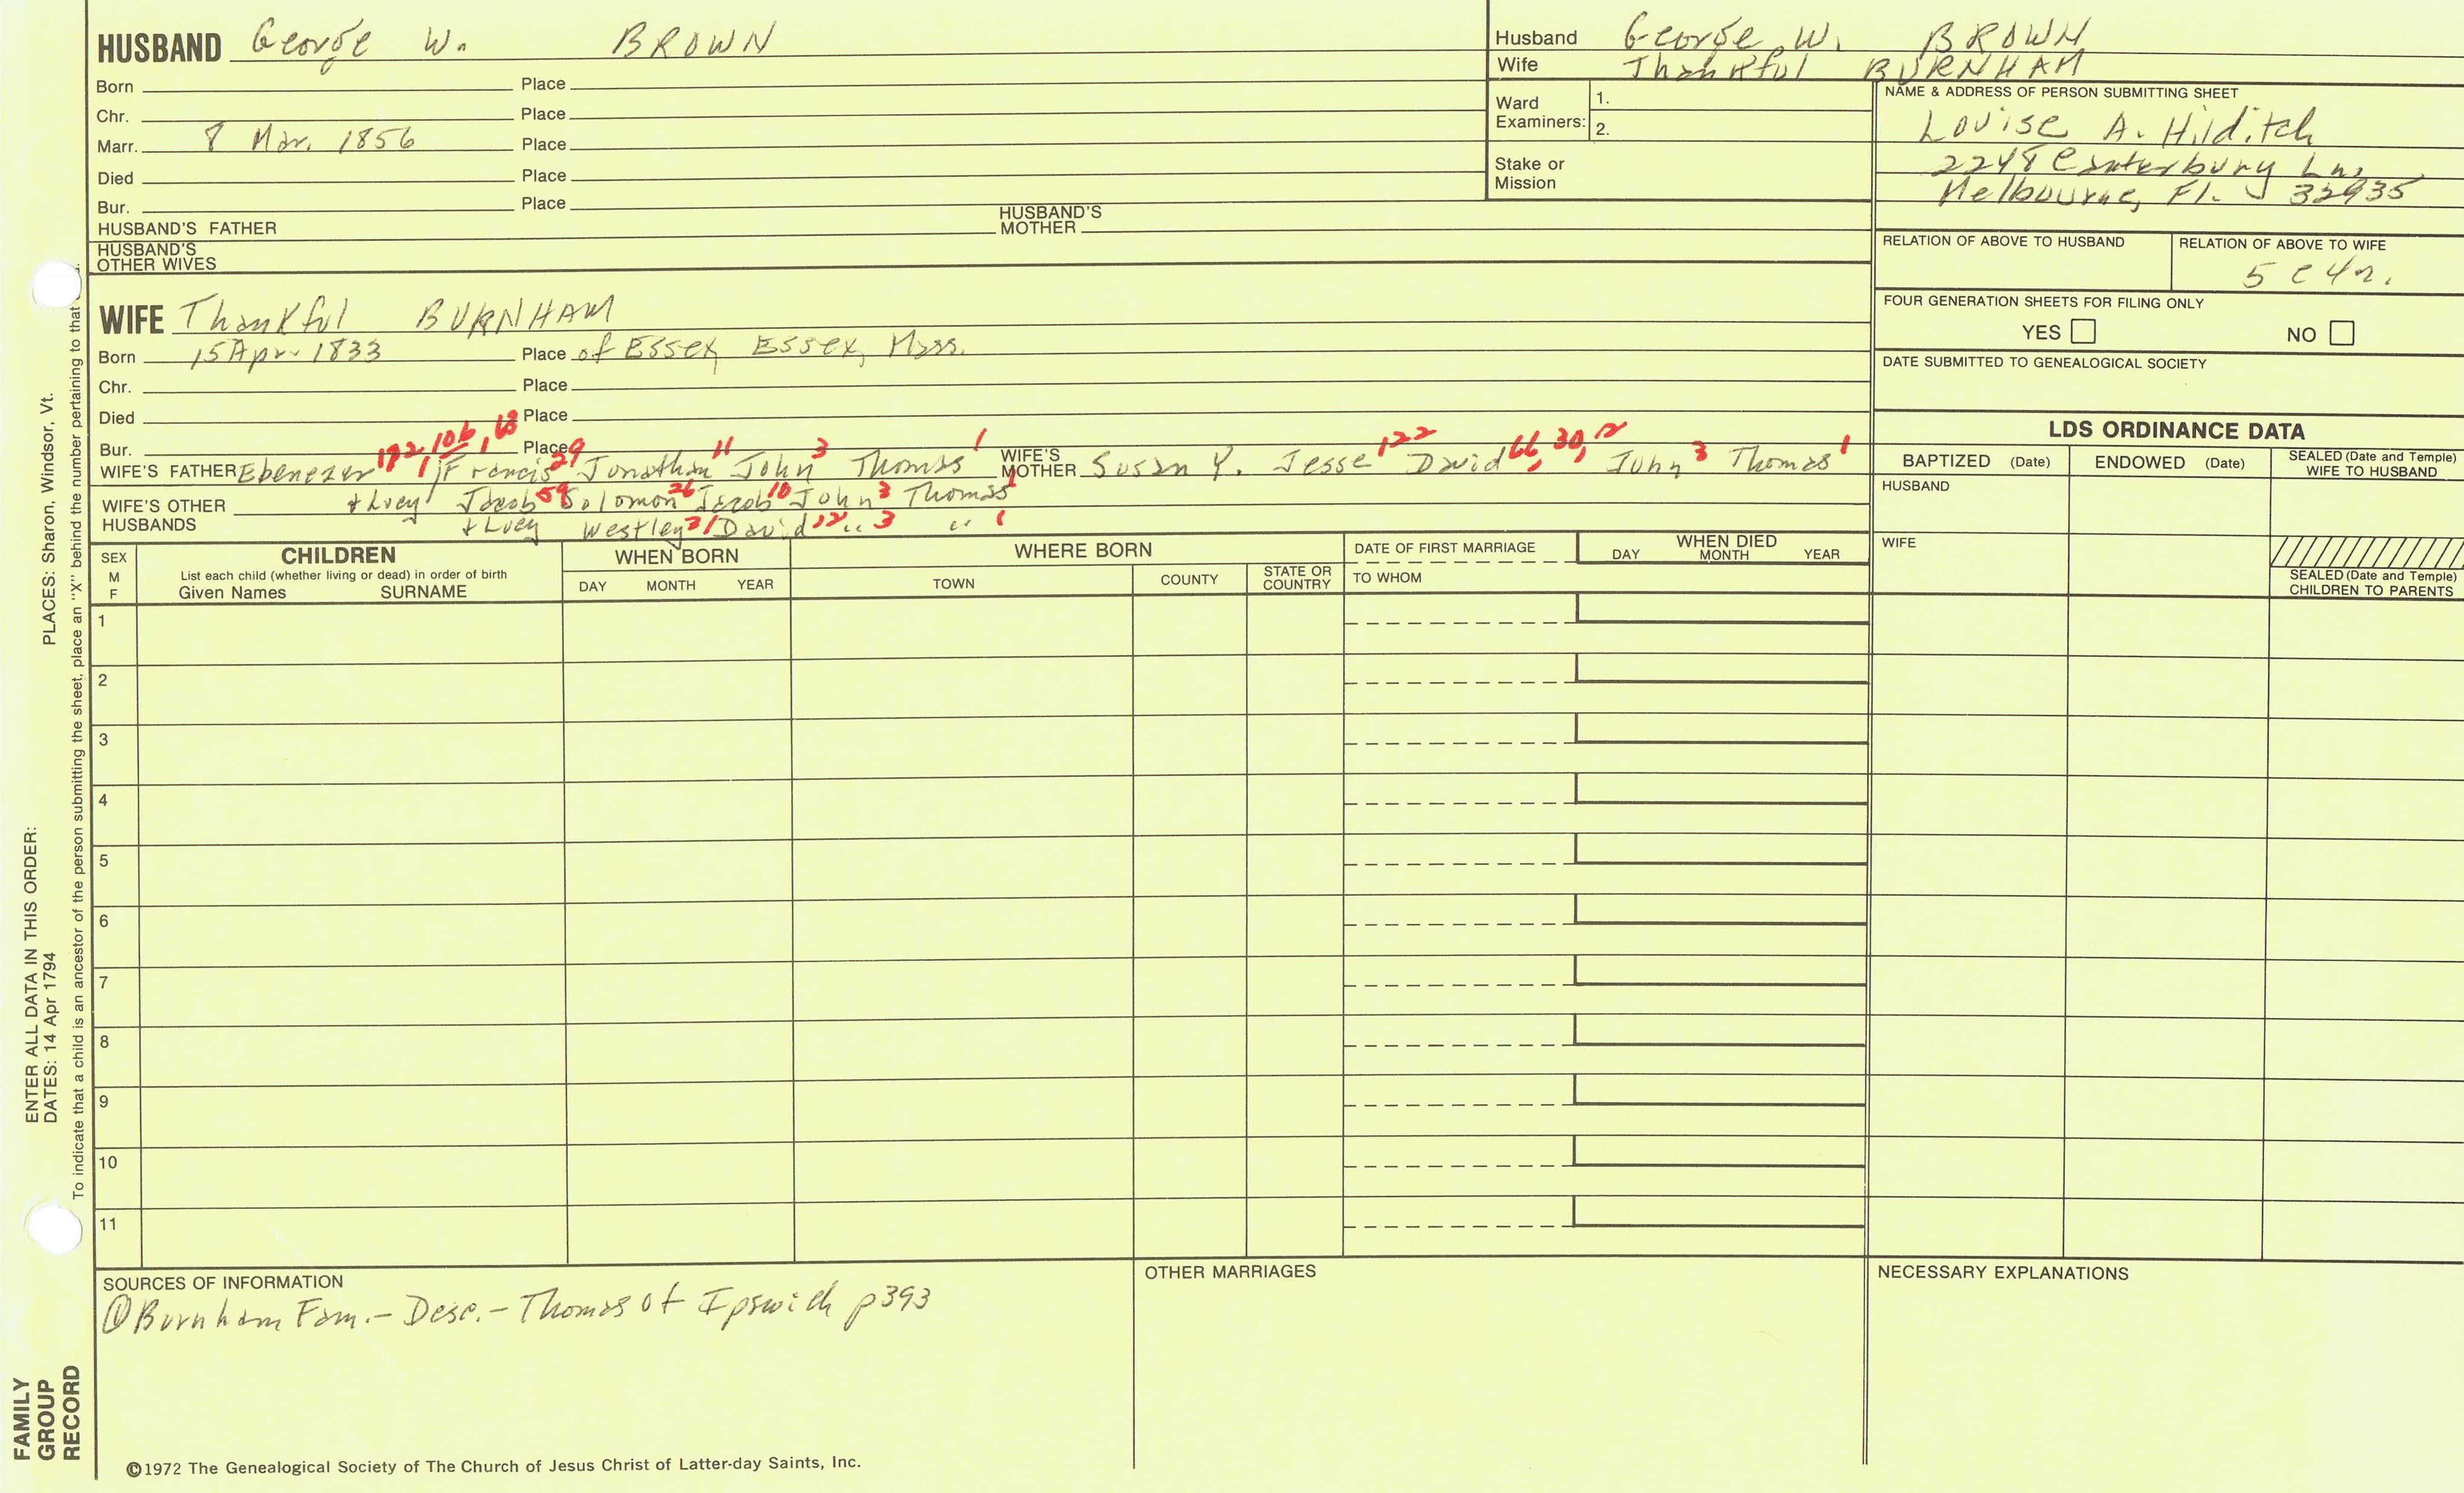 HUSBAND George W. BROWN
Born Place
Chr. Place
Marr. 8 Mar. 1856 Place
Died Place
Bur. Place
HUSBAND'S FATHER HUSBAND'S MOTHER
HUSBAND'S OTHER WIVES
Husband George W. BROWN
Wife Thankful BURNHAM
Ward Examiners: 1.
2.
Stake or Mission
NAME & ADDRESS OF PERSON SUBMITTING SHEET
Louise A. Hilditch
2248 Canterbury Ln.
Melbourne, Fl. 32935
RELATION OF ABOVE TO HUSBAND RELATION OF ABOVE TO WIFE
5 C 4 r.
FOUR GENERATION SHEETS FOR FILING ONLY
YES NO
DATE SUBMITTED TO GENEALOGICAL SOCIETY
WIFE Thankful BURNHAM
Born 15 Apr. 1833 Place of Essex, Essex, Mass.
Chr. Place
Died Place
Bur. Place
WIFE'S FATHER Ebenezer 192, 106, 63 Francis 29 Jonathan 11 John 3 Thomas 1 WIFE'S MOTHER Susan Y. Jesse 122 David 66, 30, 12 John 3 Thomas 1
WIFE'S OTHER HUSBANDS
+ Lucy Jacob 59 Solomon 26 Jacob 10 John 3 Thomas 1
+ Lucy Westley 31 David 12 " 3 " 1
LDS ORDINANCE DATA
BAPTIZED (Date) ENDOWED (Date) SEALED (Date and Temple) WIFE TO HUSBAND
HUSBAND
WIFE
SEALED (Date and Temple) CHILDREN TO PARENTS
SEX M F
CHILDREN
List each child (whether living or dead) in order of birth
Given Names SURNAME
WHEN BORN
DAY MONTH YEAR
WHERE BORN
TOWN COUNTY STATE OR COUNTRY
DATE OF FIRST MARRIAGE
TO WHOM
WHEN DIED
DAY MONTH YEAR
1
2
3
4
5
6
7
8
9
10
11
SOURCES OF INFORMATION
① Burnham Fam. - Desc. - Thomas of Ipswich p393
OTHER MARRIAGES
NECESSARY EXPLANATIONS
©1972 The Genealogical Society of The Church of Jesus Christ of Latter-day Saints, Inc.
FAMILY GROUP RECORD
ENTER ALL DATA IN THIS ORDER:
DATES: 14 Apr 1794 PLACES: Sharon, Windsor, Vt.
To indicate that a child is an ancestor of the person submitting the sheet, place an "X" behind the number pertaining to that